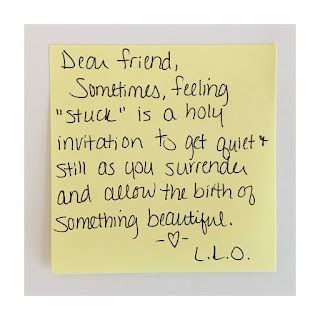 Dear friend,
Sometimes, feeling
"stuck" is a holy
invitation to get quiet &
still as you surrender
and allow the birth of
something beautiful.
-♡-
L.L.O.